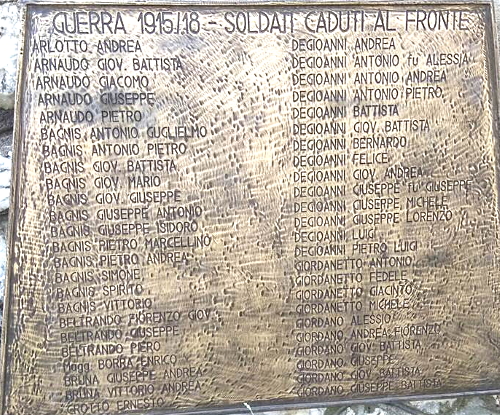 GUERRA 1915/18 - SOLDATI CADUTI AL FRONTE
ARLOTTO ANDREA
ARNAUDO GIOV. BATTISTA
ARNAUDO GIACOMO
ARNAUDO GIUSEPPE
ARNAUDO PIETRO
BAGNIS ANTONIO GUGLIELMO
BAGNIS ANTONIO PIETRO
BAGNIS GIOV. BATTISTA
BAGNIS GIOV. MARIO
BAGNIS GIOV. GIUSEPPE
BAGNIS GIUSEPPE ANTONIO
BAGNIS GIUSEPPE ISIDORO
BAGNIS PIETRO MARCELLINO
BAGNIS PIETRO ANDREA
BAGNIS SIMONE
BAGNIS SPIRITO
BAGNIS VITTORIO
BELTRANDO FIORENZO GIOV.
BELTRANDO GIUSEPPE
BELTRANDO PIERO
Magg. BORRA ENRICO
BRUNA GIUSEPPE ANDREA
BRUNA VITTORIO ANDREA
GROTTO ERNESTO
DEGIOANNI ANDREA
DEGIOANNI ANTONIO fu ALESSIA
DEGIOANNI ANTONIO ANDREA
DEGIOANNI ANTONIO PIETRO
DEGIOANNI BATTISTA
DEGIOANNI GIOV. BATTISTA
DEGIOANNI BERNARDO
DEGIOANNI FELICE
DEGIOANNI GIOV. ANDREA
DEGIOANNI GIUSEPPE fu GIUSEPPE
DEGIOANNI GIUSEPPE MICHELE
DEGIOANNI GIUSEPPE LORENZO
DEGIOANNI LUIGI
DEGIOANNI PIETRO LUIGI
GIORDANETTO ANTONIO
GIORDANETTO FEDELE
GIORDANETTO GIACINTO
GIORDANETTO MICHELE
GIORDANO ALESSIO
GIORDANO ANDREA FIORENZO
GIORDANO GIOV. BATTISTA
GIORDANO GIUSEPPE
GIORDANO GIOV. BATTISTA
GIORDANO GIUSEPPE BATTISTA